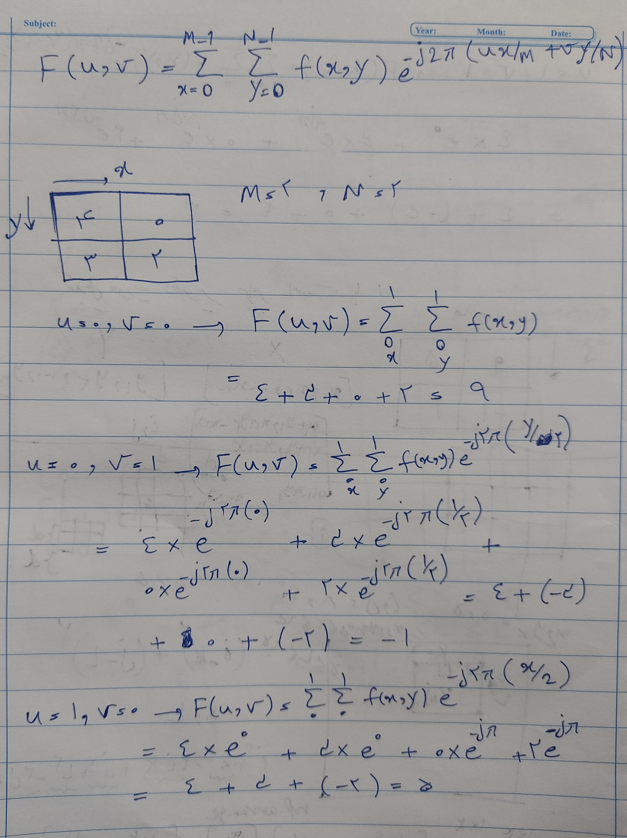 Subject:
Year: Month: Date:
F(u,v) = Σ_{x=0}^{M-1} Σ_{y=0}^{N-1} f(x,y) e^{-j2π(ux/M + vy/N)}
x
y
M=۲ , N=۲
۴ ۰
۳ ۲
u=۰, v=۰ → F(u,v) = Σ_{x=0}^{1} Σ_{y=0}^{1} f(x,y)
= ۴ + ۳ + ۰ + ۲ = ۹
u=۰, v=1 → F(u,v) = Σ_{x=۰}^{1} Σ_{y=۰}^{1} f(x,y) e^{-j۲π(y/۲)}
= ۴ × e^{-j۲π(۰)} + ۳ × e^{-j۲π(1/۲)} +
۰ × e^{-j۲π(۰)} + ۲ × e^{-j۲π(1/۲)} = ۴ + (-۳)
+ ۰ + (-۲) = -1
u=1, v=۰ → F(u,v) = Σ_{۰}^{1} Σ_{۰}^{1} f(x,y) e^{-j۲π(x/2)}
= ۴ × e^{۰} + ۳ × e^{۰} + ۰ × e^{-jπ} + ۲e^{-jπ}
= ۴ + ۳ + (-۲) = ۵